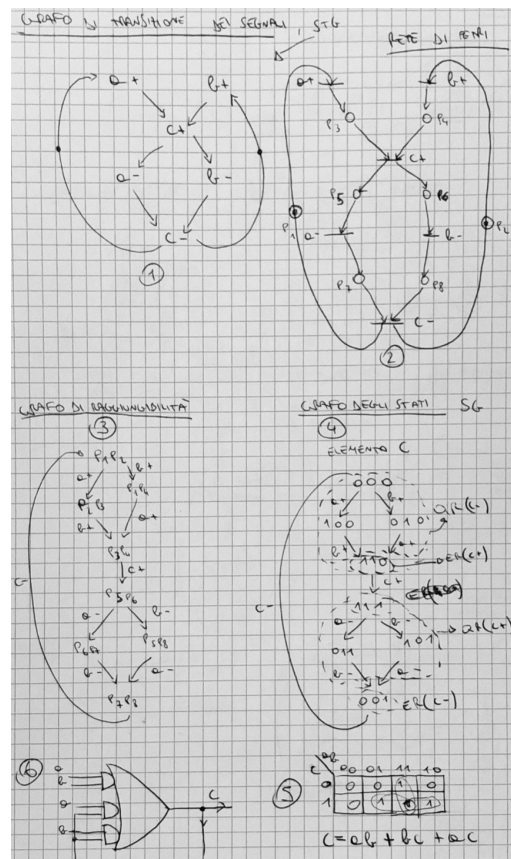 GRAFO DI TRANSIZIONE DEI SEGNALI, STG
RETE DI PETRI
a+ b+
c+
a- b-
c-
1
a+ b+
P3 P4
c+
P5 P6
P1 a- b- P2
P7 P8
c-
2
GRAFO DI RAGGIUNGIBILITÀ
3
P1P2
a+ b+
P2P3 P1P4
b+ a+
P3P4
c+
P5P6
a- b-
P6P7 P5P8
b- a-
P7P8
c-
GRAFO DEGLI STATI SG
4
ELEMENTO C
000
a+ b+
100 010 QR(c-)
b+ a+
110 ER(c+)
c+
111
a- b- QR(c+)
011 101
b- a-
001 ER(c-)
c-
6
a
b
a
b
C
5
ab
C 00 01 11 10
0 0 0 1 0
1 0 1 1 1
C=ab+bc+ac